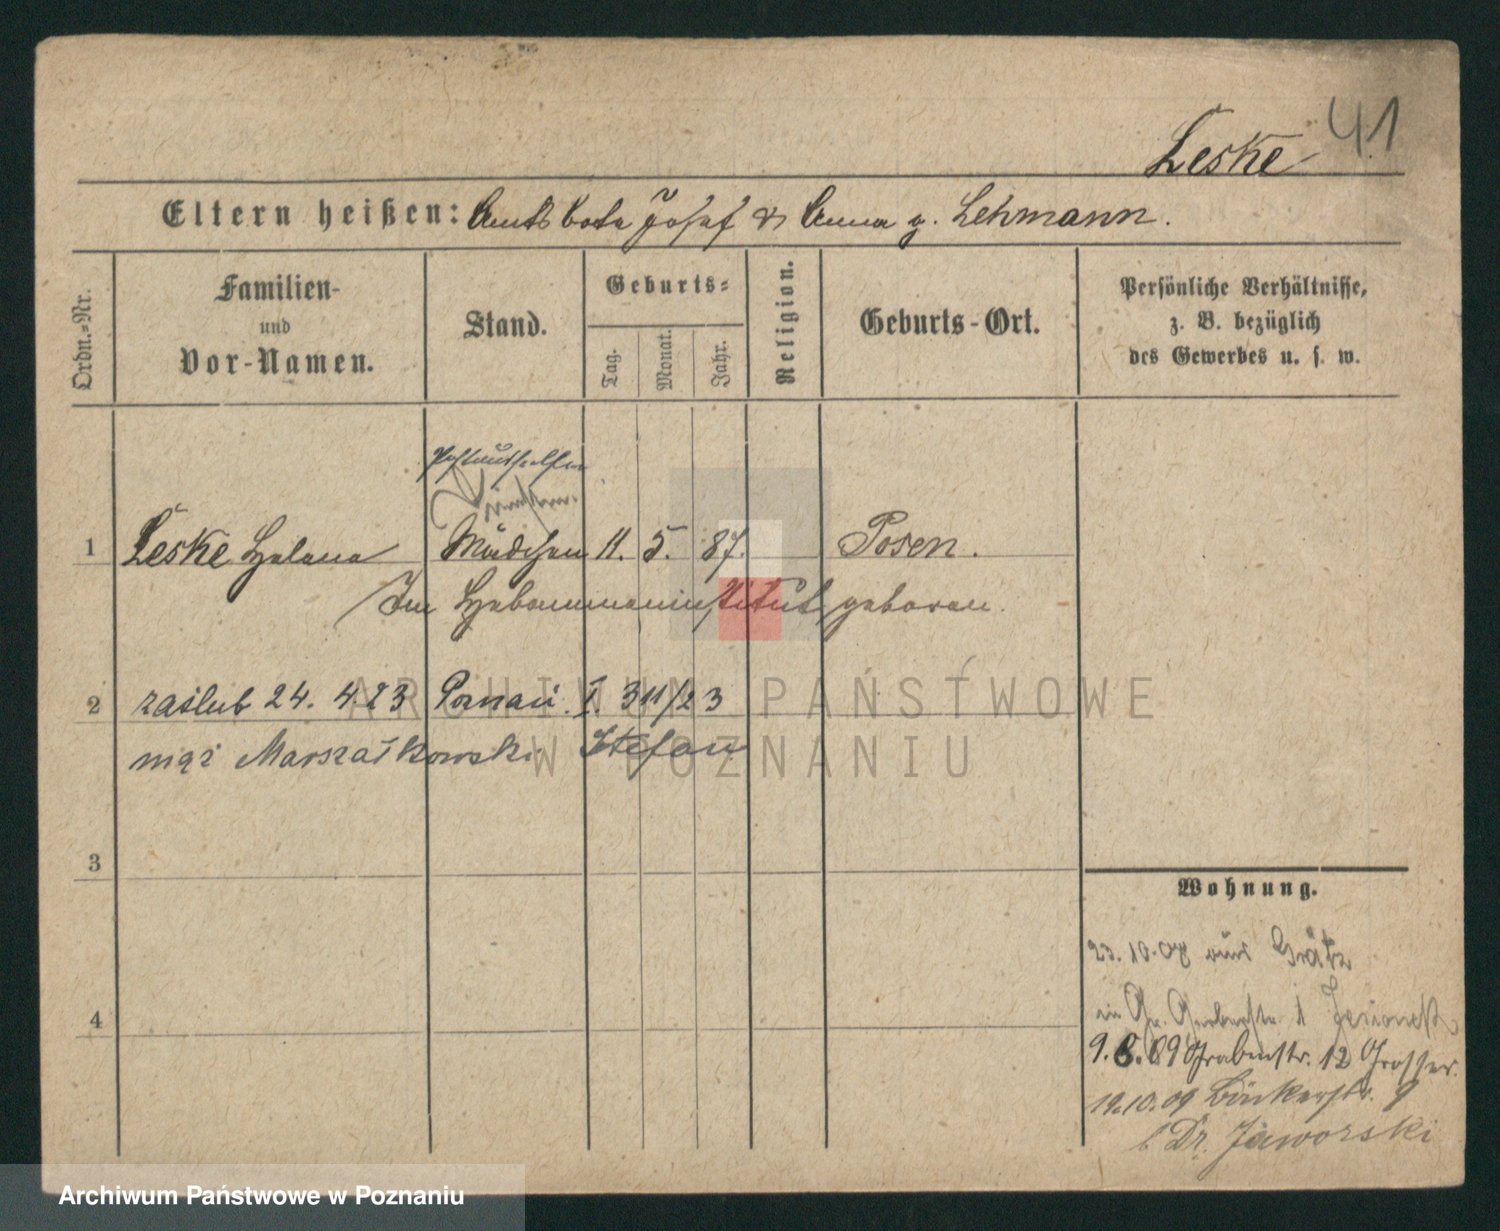 41
Leske
Eltern heißen: Amtsbote Josef & Anna g. Lehmann.
Ordn.-Nr.
Familien-
und
Vor-Namen.
Stand.
Geburts-
Tag.
Monat.
Jahr.
Religion.
Geburts-Ort.
Persönliche Verhältnisse,
z. B. bezüglich
des Gewerbes u. s. w.
1 Leske Helene Mädchen 11. 5. 87. Posen.
Im Hebammeninstitut geboren.
2 zaślub 24. 4. 23 Poznań. I. 311/23
mąż Marszałkowski Stefan
3
4
Wohnung.
23. 10. 08 aus Grätz
9. 8. 09 Grabenstr. 12 Grosser.
19.10.09 Bäckerstr. 9
b Dr. Jaworski
ARCHIWUM PAŃSTWOWE
W POZNANIU
Archiwum Państwowe w Poznaniu